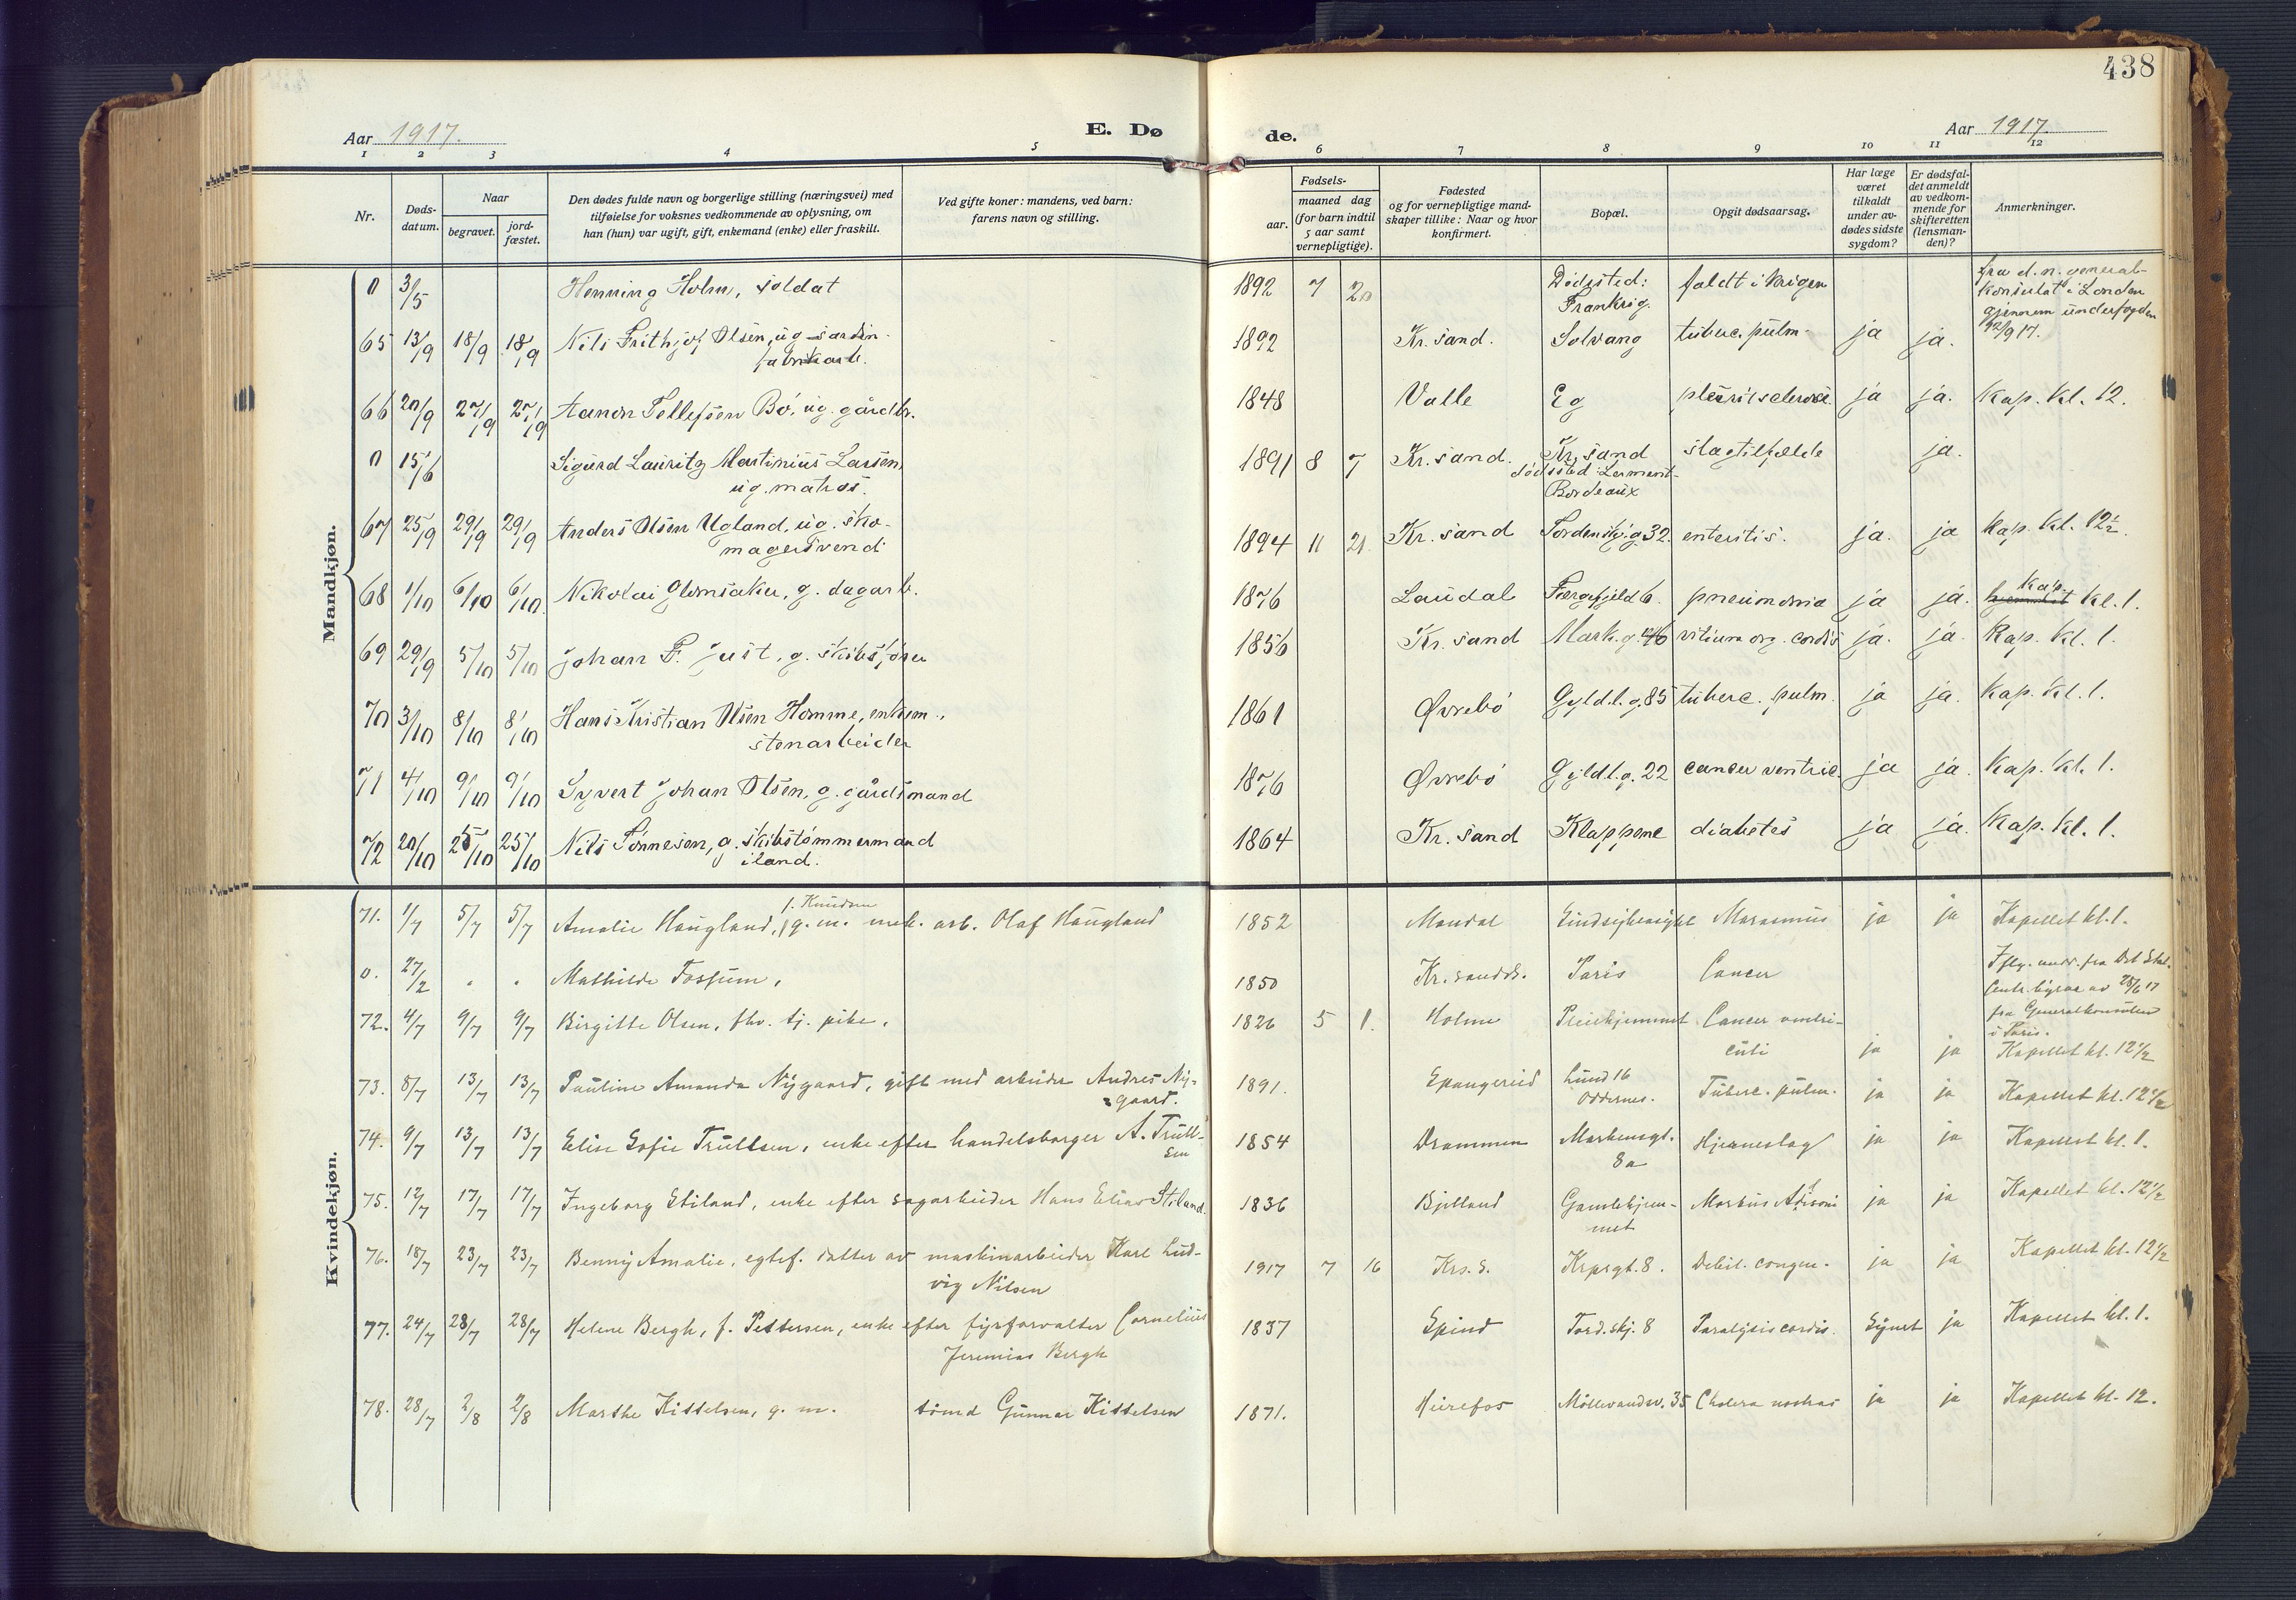 438
Aar 1917.
E. Dø
de.
Aar 1917.
1 2 3 4 5 6 7 8 9 10 11 12
Nr.
Døds-
datum.
Naar
begravet.
jord-
fæstet.
Den dødes fulde navn og borgerlige stilling (næringsvei) med
tilføielse for voksnes vedkommende av oplysning, om
han (hun) var ugift, gift, enkemand (enke) eller fraskilt.
Ved gifte koner: mandens, ved barn:
farens navn og stilling.
Fødsels-
aar.
maaned dag
(for barn indtil
5 aar samt
vernepligtige).
Fødested
og for vernepligtige mand-
skaper tillike: Naar og hvor
konfirmert.
Bopæl.
Opgit dødsaarsag.
Har læge
været
tilkaldt
under av-
dødes sidste
sygdom?
Er dødsfal-
det anmeldt
av vedkom-
mende for
skifteretten
(lensman-
den)?
Anmerkninger.
Mandkjøn.
0 3/5 Henning Holm, soldat 1892 7 20 Dødssted: Frankrig. faldt i krigen fra d. n. general-
konsulat i London
gjennem underfogden
12/9 17.
65 13/9 18/9 18/9 Nils Frithjof Olsen, ug. sardin-
fabrikarb. 1892 Kr. sand. Solvang tuberc. pulm. ja ja.
66 20/9 27/9 27/9 Aanon Tellefsen Bø, ug. gårdbr. 1848 Valle Eg ja ja. Kap. kl. 12.
0 15/6 Sigurd Lauritz Martinius Larsen,
ug. matros. 1891 8 7 Kr. sand. Kr. sand
dødssted: Lormont-
Bordeaux slagtilfælde ja.
67 25/9 29/9 29/9 Anders Olsen Ugland, ug. sko-
magersvend 1894 11 21 Kr. sand Tordenskj. g. 32. enteritis. ja. ja Kap. kl. 12 1/2.
68 1/10 6/10 6/10. Nikolai Glomsaker, g. dagarb. 1876 Laudal pneumonia ja ja. Kap. kl. 1.
69 29/9 5/10 5/10 Johan F. Just, g. skibsfører 1856 Kr. sand Mark. g. 46 vitium org. cordis ja. ja. Kap. kl. 1.
70 3/10 8/10 8/10 Hans Kristian Olsen Homme, enkem.,
stenarbeider 1861 Øvrebø Gyld.l. g. 85 tuberc. pulm. ja ja. Kap. kl. 1.
71 4/10 9/10 9/10 Syvert Johan Olsen, g. gårdsmand 1876 Øvrebø Gyld.l. g. 22 cancer ventric. ja ja. Kap. kl. 1.
72 20/10 25/10 25/10 Nils Tønnesen, g. skibstømmermand
iland. 1864 Kr. sand Klappene diabetes ja ja. Kap. kl. 1.
Kvindekjøn.
71. 1/7 5/7 5/7 Amalie Haugland, f. Knudsen g. m. mek. arb. Olaf Haugland 1852 Mandal Marasmus ja ja Kapellet kl. 1.
0. 27/2 " " Mathilde Fossum, 1850 Kr. sands. Paris Cancer Iflg. medd. fra Det Stat.
Centr. byraa av 28/6 17
fra Generalkonsulen
i Paris.
72. 4/7 9/7 9/7 Birgitte Olsen, fhv. tj. pike, 1826 5 1. Holme Pleiehjemmet Cancer ventri-
culi ja ja Kapellet kl. 12 1/2
73. 8/7 13/7 13/7 Pauline Amanda Nygaard, gift med arbeider Andres Ny-
gaard. 1891. Spangereid Lund 16
Oddernes. Tuberc. pulm. ja ja Kapellet kl. 12 1/2
74. 9/7 13/7 13/7 Elise Sofie Trullsen, enke efter handelsborger A. Trull-
sen 1854 Drammen Markensgt.
8a Hjerneslag ja ja Kapellet kl. 1.
75. 12/7 17/7 17/7 Ingeborg Stiland, enke efter sagarbeider Hans Elias Stiland. 1836 Bjelland Gamlehjem-
met Morbus Adisoni ja ja Kapellet kl. 12 1/2
76. 18/7 23/7 23/7 Benny Amalie, egtef. datter av maskinarbeider Karl Lud-
vig Nilsen 1917 7 16 Krs. S. Krpsgt. 8. Debil. congen. ja ja Kapellet kl. 12 1/2
77. 24/7 28/7 28/7 Helene Bergh, f. Pettersen, enke efter fyrforvalter Cornelius
Jeremias Bergh 1837 Spind Tord.skj. 8 Paralysis cordis. Synet ja Kapellet kl. 1.
78. 28/7 2/8 2/8 Marthe Kittelsen, g. m. tømd Gunnar Kittelsen 1871. Heirefos Møllevandsv. 35 Cholera nostras ja ja Kapellet kl. 12.